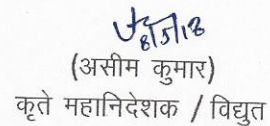 8/5/18
(असीम कुमार)
कृते महानिदेशक / विद्युत